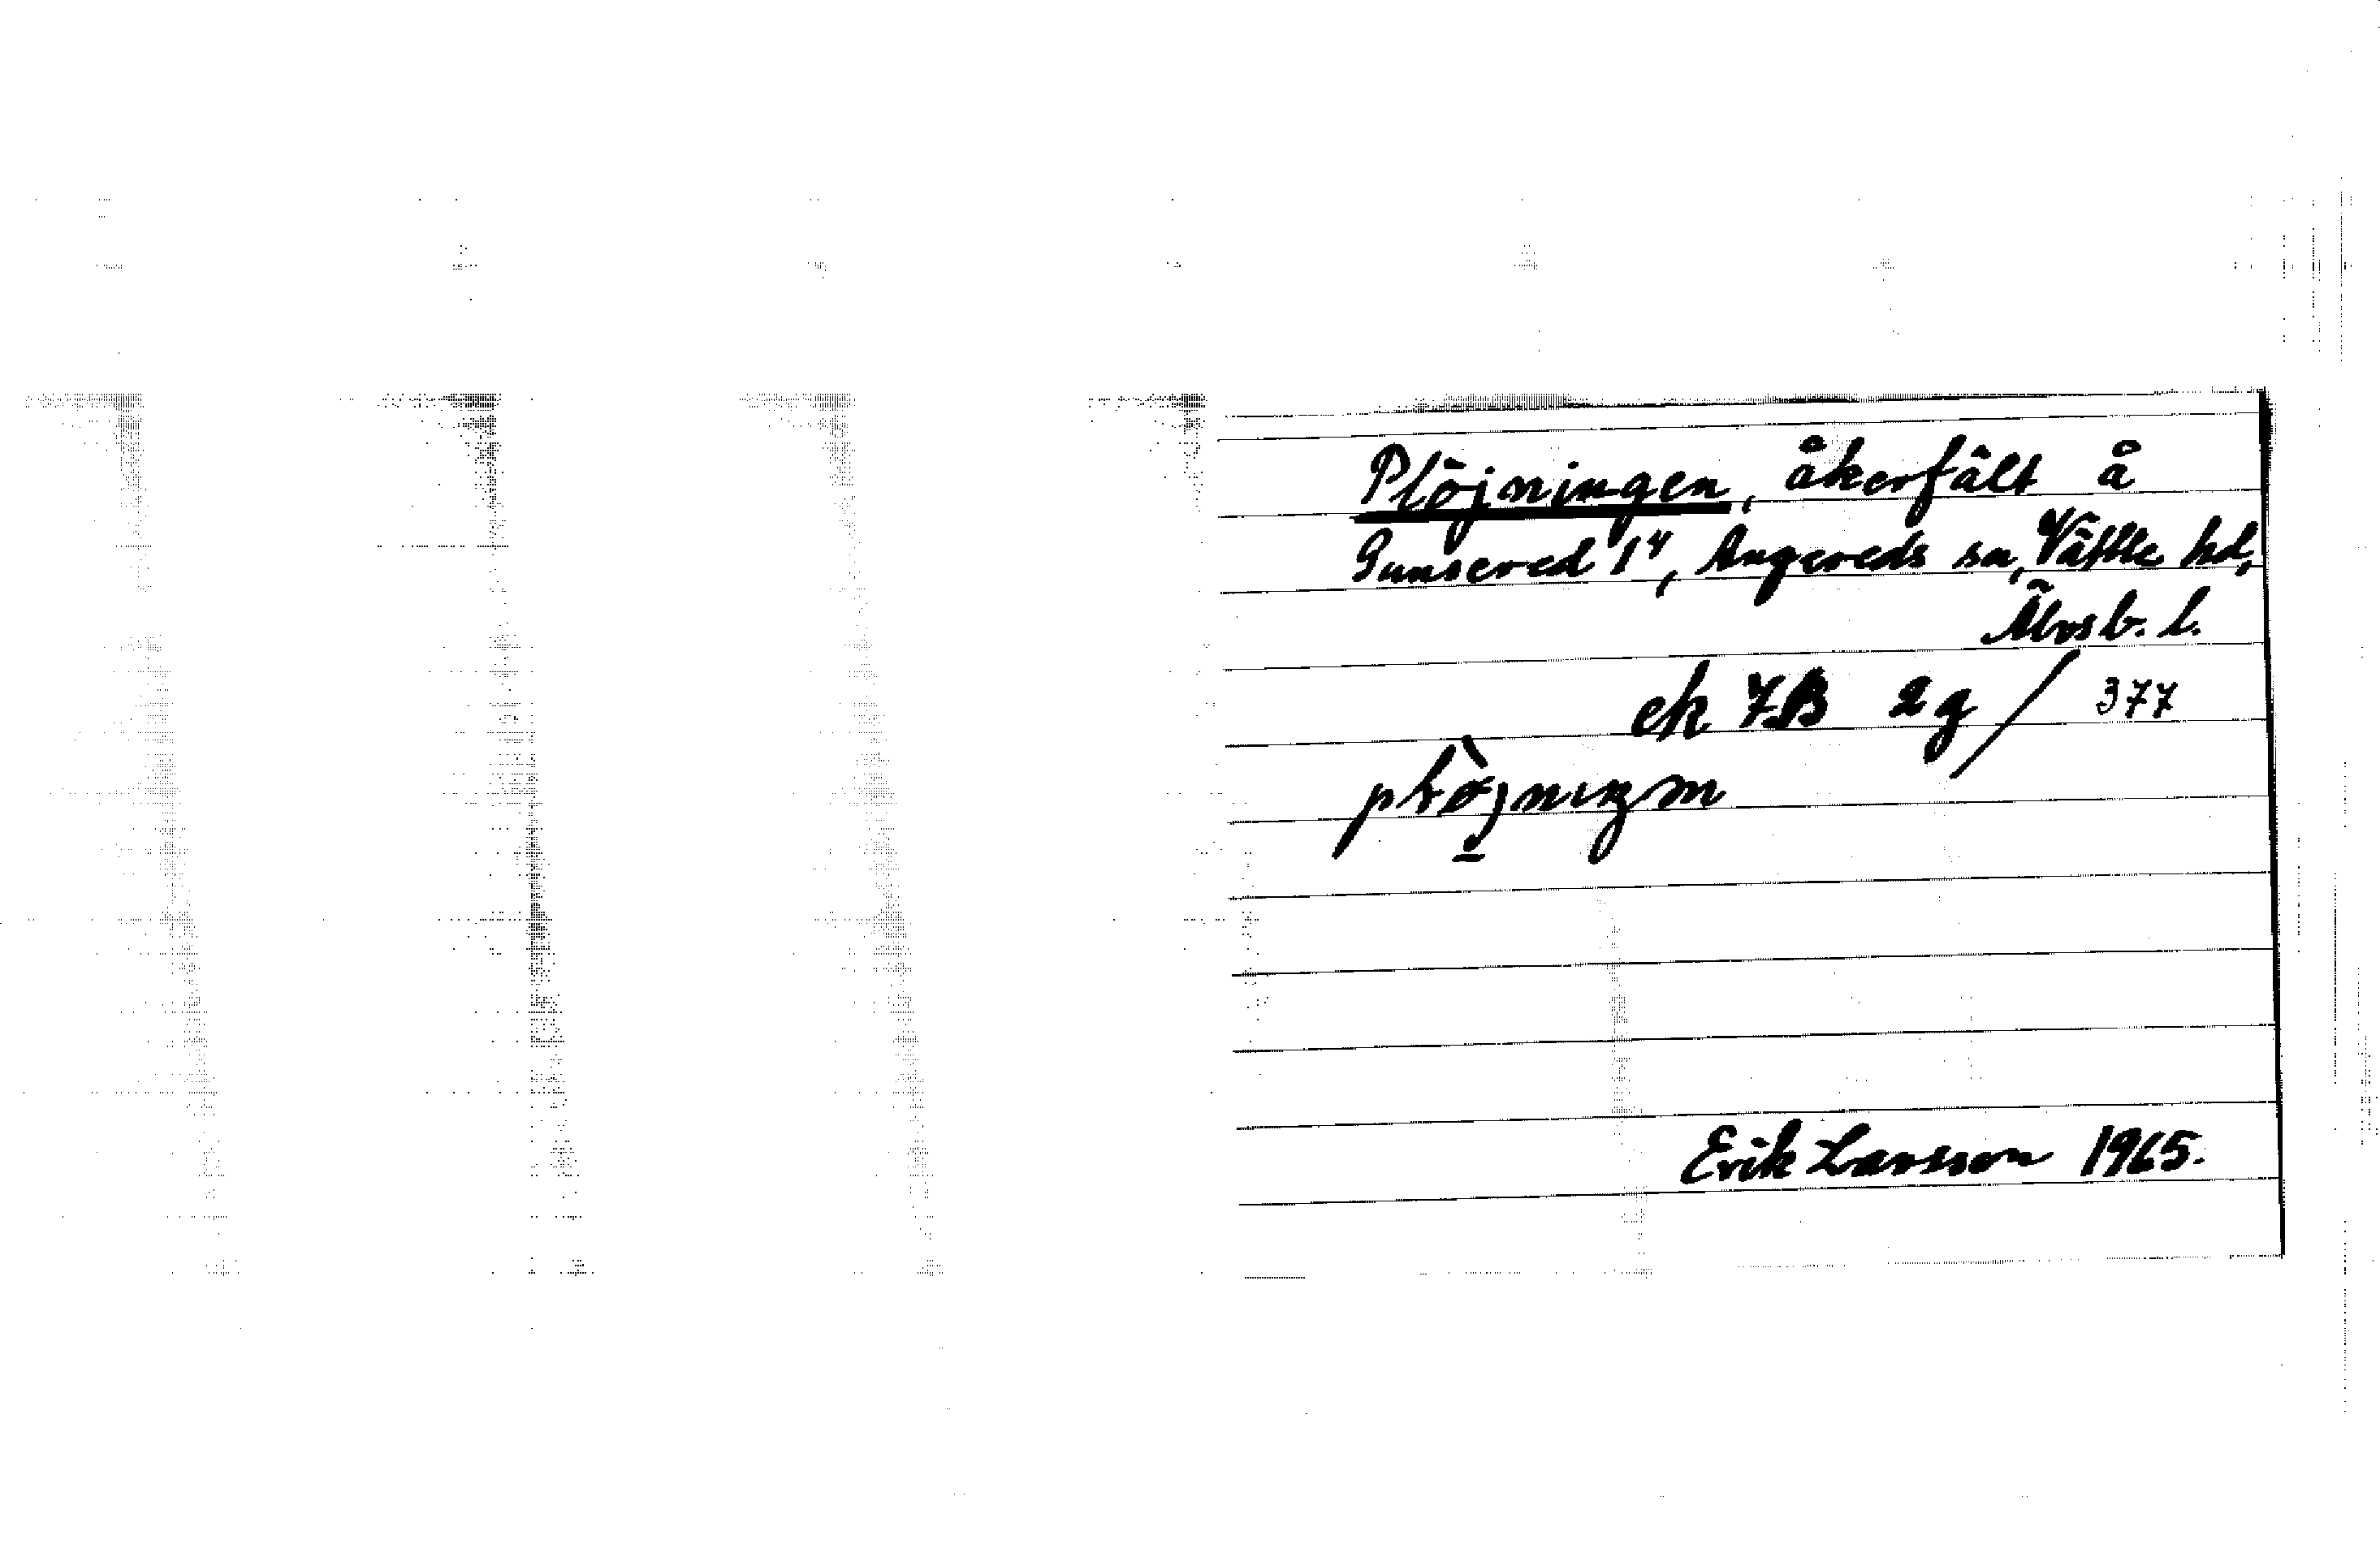 Plöjningen, åkerfält å
Gunnered 1⁴, Angereds sn, Vättle hd,
Älvsb. l.
ek 7B 2g / 377
Erik Larsson 1965.